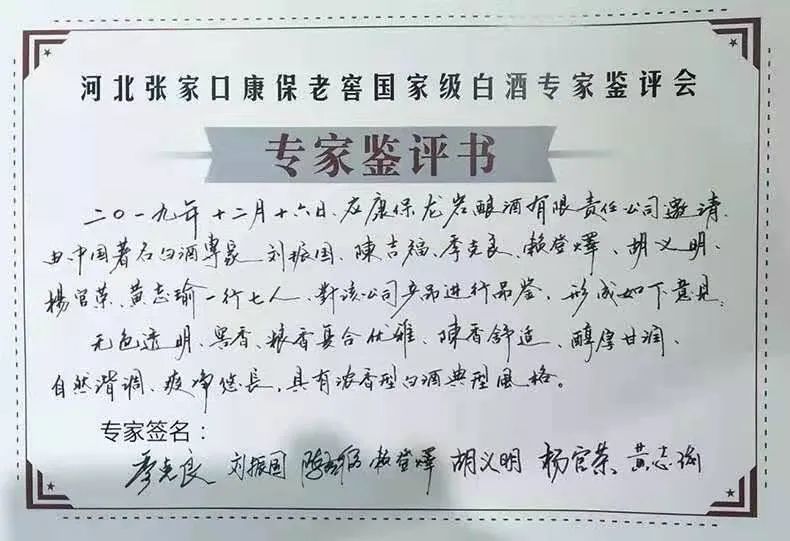 河北张家口康保老窖国家级白酒专家鉴评会
专家鉴评书
二〇一九年十二月十六日、应康保龙岩酿酒有限责任公司邀请
由中国著名白酒專家 刘振国、陳吉福、季克良、賴登燡、胡义明、
楊官荣、黄志瑜一行七人、對該公司产品进行品鉴，形成如下意见：
无色透明、窖香、粮香复合优雅、陳香舒适、醇厚甘润、
自然谐调、爽净悠長，具有浓香型白酒典型風格。
专家签名：
季克良 刘振国 陈吉福 赖登燡 胡义明 杨官荣 黄志瑜